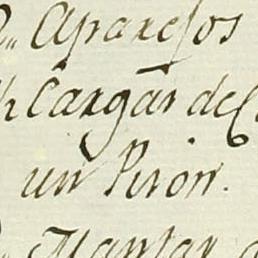 Aparejos
Cargar de
un Piron.
Mantas